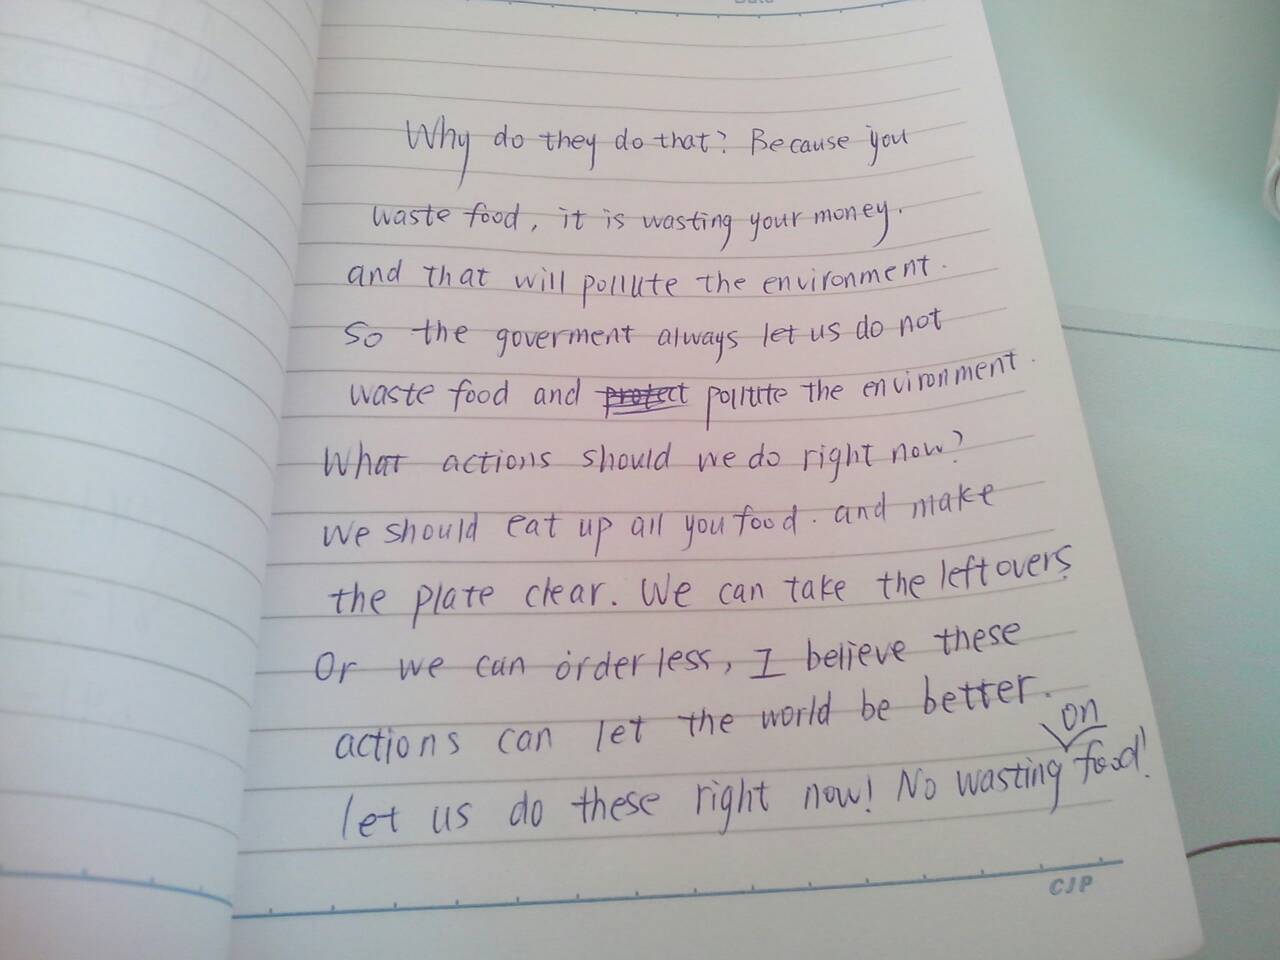 Why do they do that? Because you
waste food, it is wasting your money.
and that will pollute the environment.
So the goverment always let us do not
waste food and protect pollute the environment.
What actions should we do right now?
We should eat up all you food. and make
the plate clear. We can take the leftovers
Or we can order less, I believe these
actions can let the world be better.
on
let us do these right now! No wasting food!
CJP